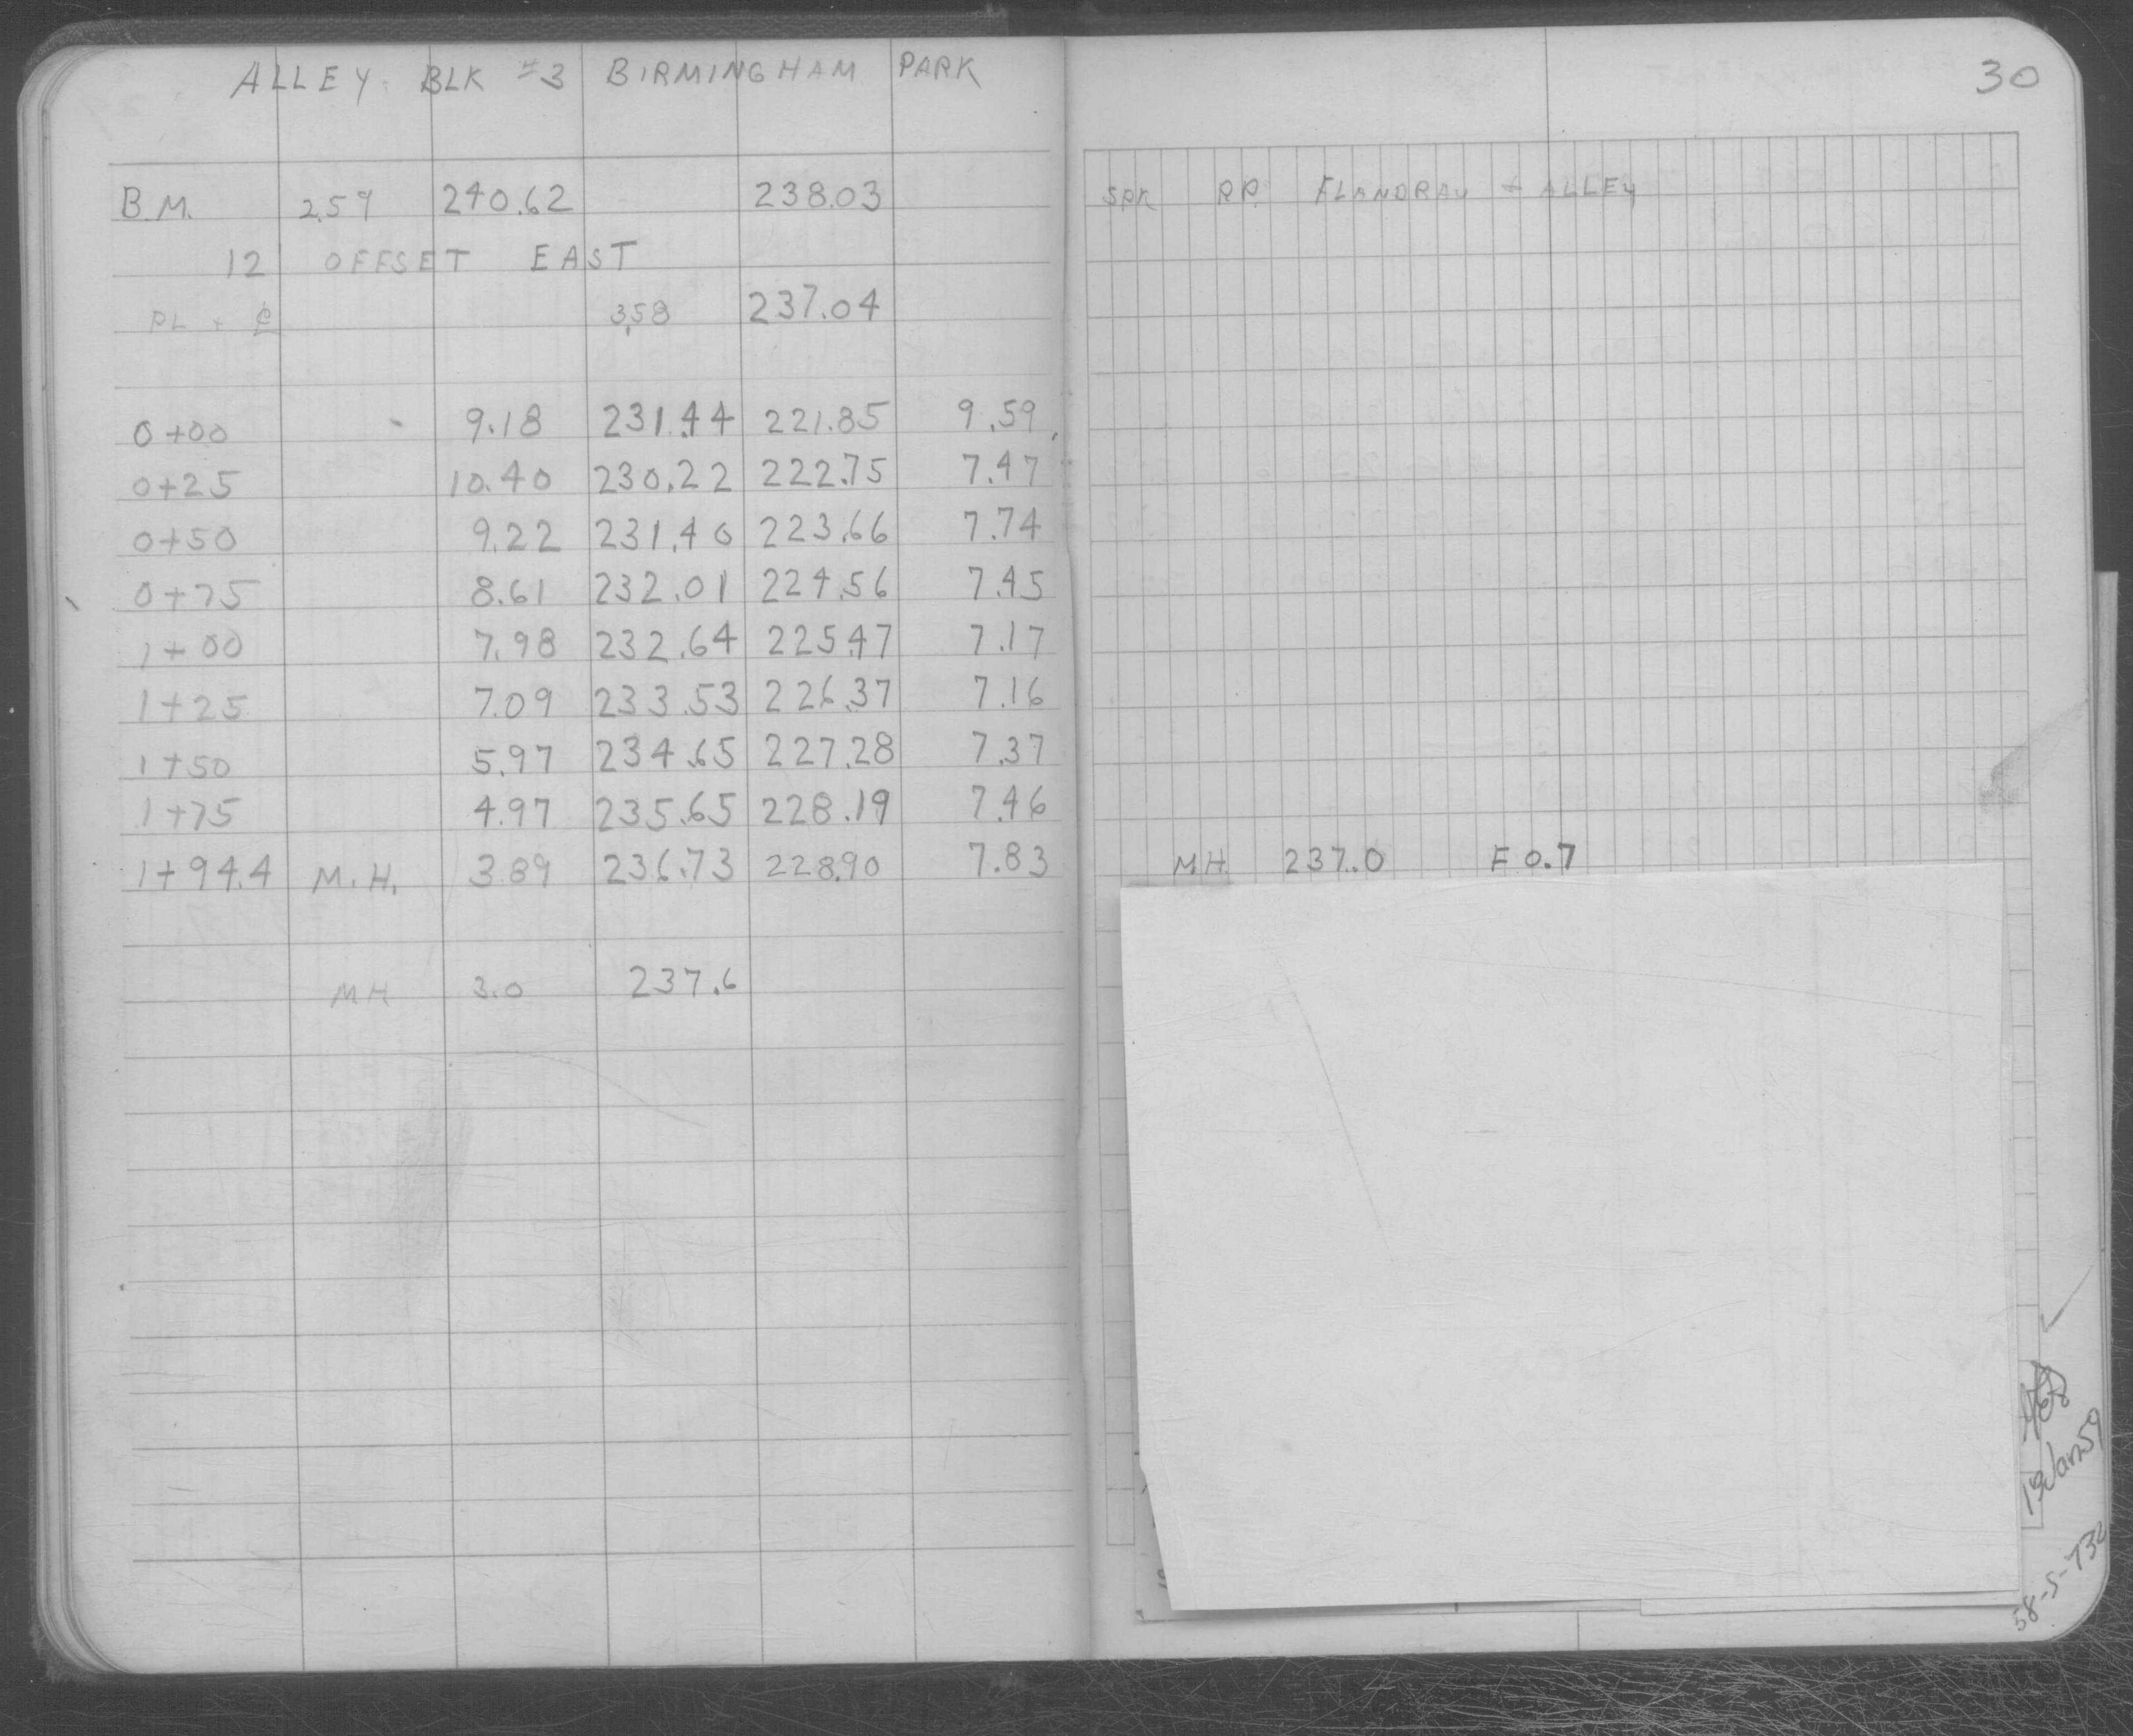 ALLEY BLK #3 BIRMINGHAM PARK
30
B.M. 2.59 240.62 238.03 SPK P.P. FLANDRAU + ALLEY
12 OFFSET EAST
PL + ⅊ 3.58 237.04
0+00 - 9.18 231.44 221.85 9.59
0+25 10.40 230.22 222.75 7.47
0+50 9.22 231.40 223.66 7.74
0+75 8.61 232.01 224.56 7.45
1+00 7.98 232.64 225.47 7.17
1+25 7.09 233.53 226.37 7.16
1+50 5.97 234.65 227.28 7.37
1+75 4.97 235.65 228.19 7.46
1+94.4 M.H. 3.89 236.73 228.90 7.83 M.H. 237.0 F 0.7
MH 3.0 237.6
19Jan59
58-S-732